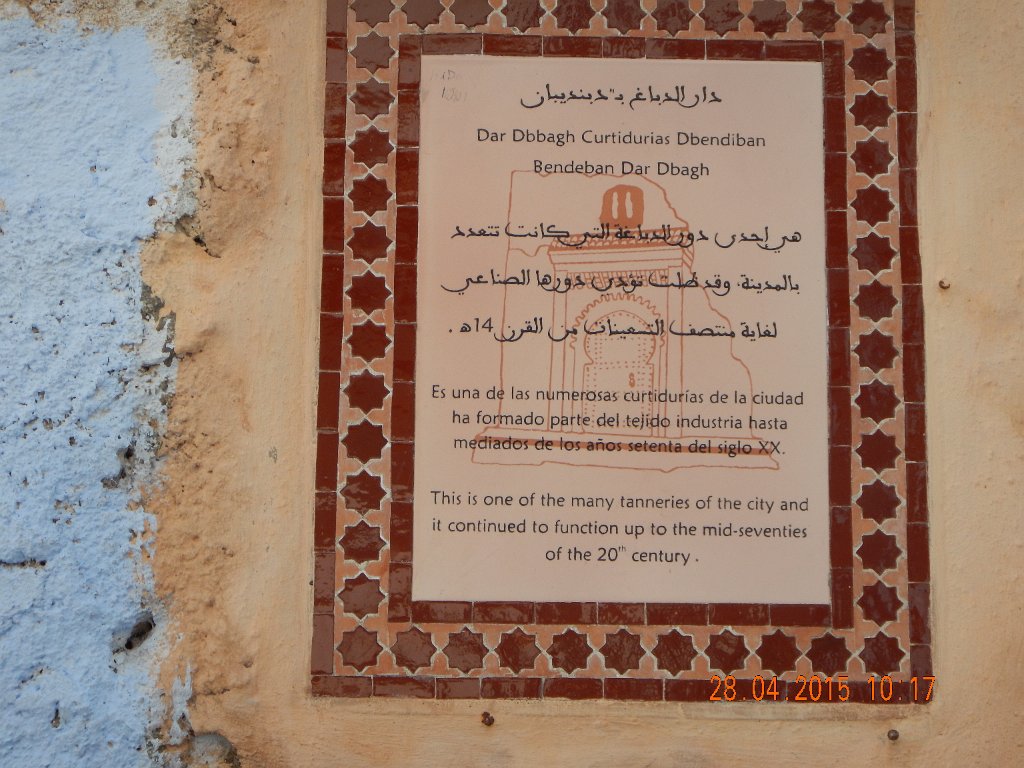 دار الدباغ بـ"دبنديبان
Dar Dbbagh Curtidurias Dbendiban
Bendeban Dar Dbagh
هي إحدى دور الدباغة التي كانت تتعدد
بالمدينة، وقد ظلت تؤدي دورها الصناعي
لغاية منتصف التسعينات من القرن 14هـ.
Es una de las numerosas curtidurías de la ciudad
ha formado parte del tejido industria hasta
mediados de los años setenta del siglo XX.
This is one of the many tanneries of the city and
it continued to function up to the mid-seventies
of the 20th century.
28.04.2015 10:17